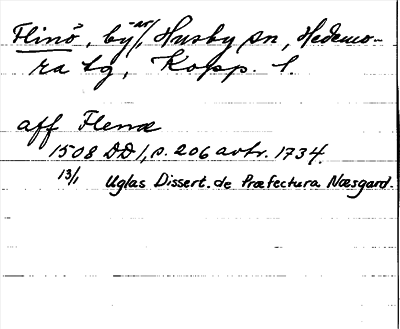 Flinö, by -ar/, Husby sn, Hedemo-
ra tg, Kopp. l.
aff Flenæ
1508 DD 1, s. 206 avtr. 1734.
13/1 Uglas Dissert. de Præfectura Næsgard.